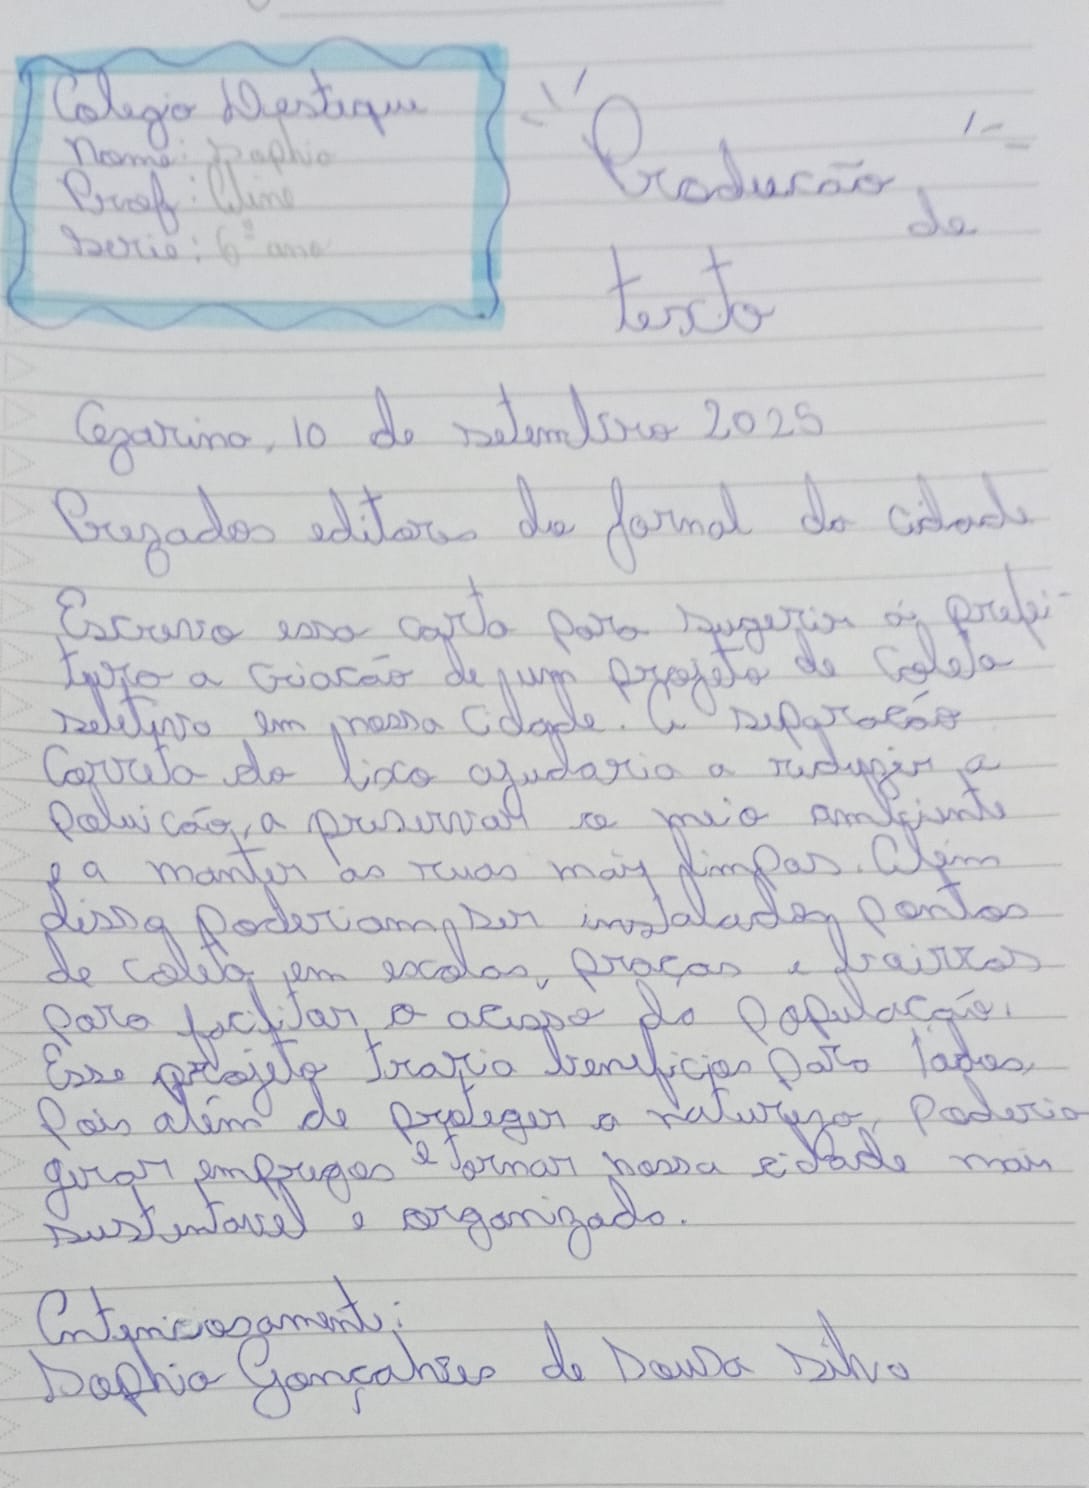 Colegio Destaque
Nome: Sophia
Prof: Aline
Serie: 6º ano
Producão
de
texto
Cezarina, 10 de setembro 2025
Prezados editores do Jornal da cidade
Escrevo essa carta para sugerir á prefei-
tura a criacão de um projeto de coleta
seletiva em nossa cidade. A separacão
correta do lixo ajudaria a reduzir a
poluicão, a preservar o meio ambiente
e a manter as ruas mais limpas. Além
disso poderiam ser instalados pontos
de coleta em escolas, praças e bairros
para facilitar o acesso da população.
Esse projeto traria beneficios para todos,
Pois além de proteger a natureza, poderia
gerar empregos e tornar nossa cidade mais
sustentavel e organizada.
Sophia Gonçalves de Sousa Silva